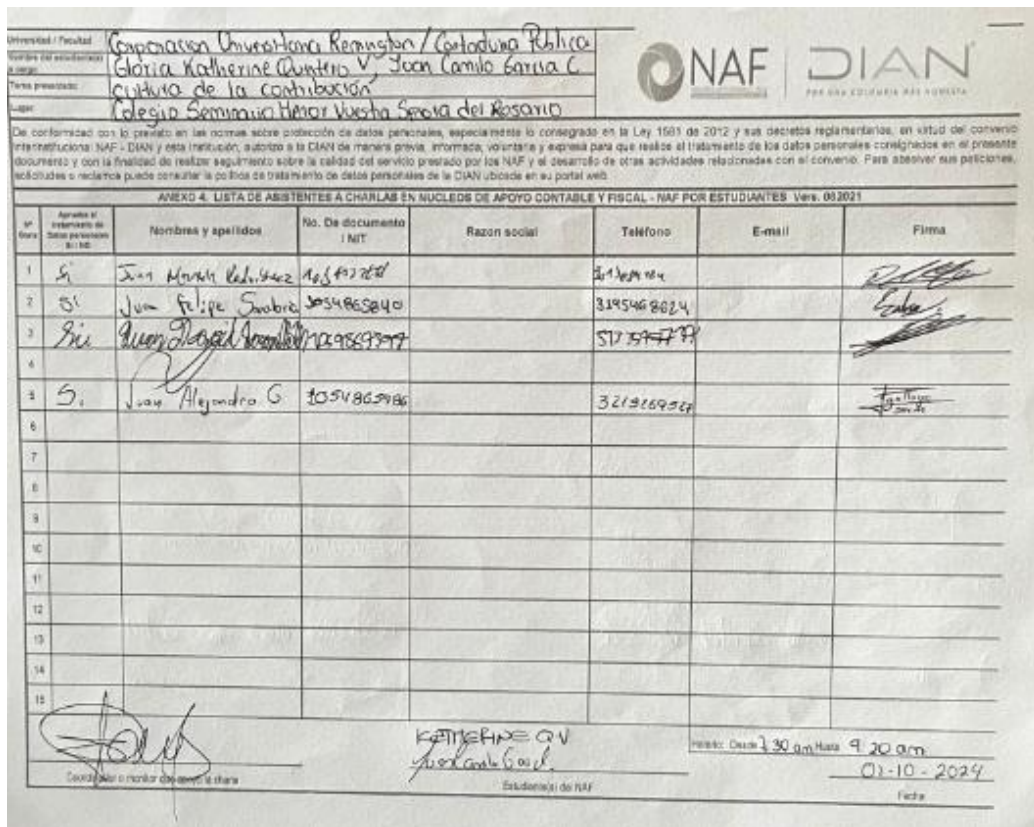 Universidad / Facultad Corporacion Universitaria Remington / Contaduria Publica
Nombre del estudiante(s) a cargo: Gloria Katherine Quintero V, Juan Camilo Garcia C
Tema presentado: cultura de la contribución
Lugar: Colegio Seminario Menor Nuestra Senora del Rosario
NAF DIAN
POR UNA COLOMBIA MÁS HONESTA
De conformidad con lo previsto en las normas sobre protección de datos personales, especialmente lo consegrado en la Ley 1581 de 2012 y sus decretos reglamentarios, en virtud del convenio
interinstitucional NAF - DIAN y esta institución, autorizo a la DIAN de manera previa, informada, voluntaria y expresa para que realice el tratamiento de los datos personales consignados en el presente
documento y con la finalidad de realizar seguimiento sobre la calidad del servicio prestado por los NAF y el desarrollo de otras actividades relacionadas con el convenio. Para absolver sus peticiones,
solicitudes o reclamos puede consultar la política de tratamiento de datos personales de la DIAN ubicada en su portal web.
ANEXO 4. LISTA DE ASISTENTES A CHARLAS EN NUCLEOS DE APOYO CONTABLE Y FISCAL - NAF POR ESTUDIANTES Vers. 082021
Nº Aprueba el tratamiento de Datos personales SI / NO Nombres y apellidos No. De documento / NIT Razon social Teléfono E-mail Firma
1 Si Juan
2 Si Juan Felipe Sanabria 1054865840 3195468624
3 Si Juan David
4
5 S. Juan Alejandro G 1054865986
6
7
8
9
10
11
12
13
14
15
KATHERINE QV
Horario: Desde 7 30 am Hasta 9 20 am
Coordinador o monitor que apoyó la charla Estudiante(s) del NAF 02-10-2024
Fecha